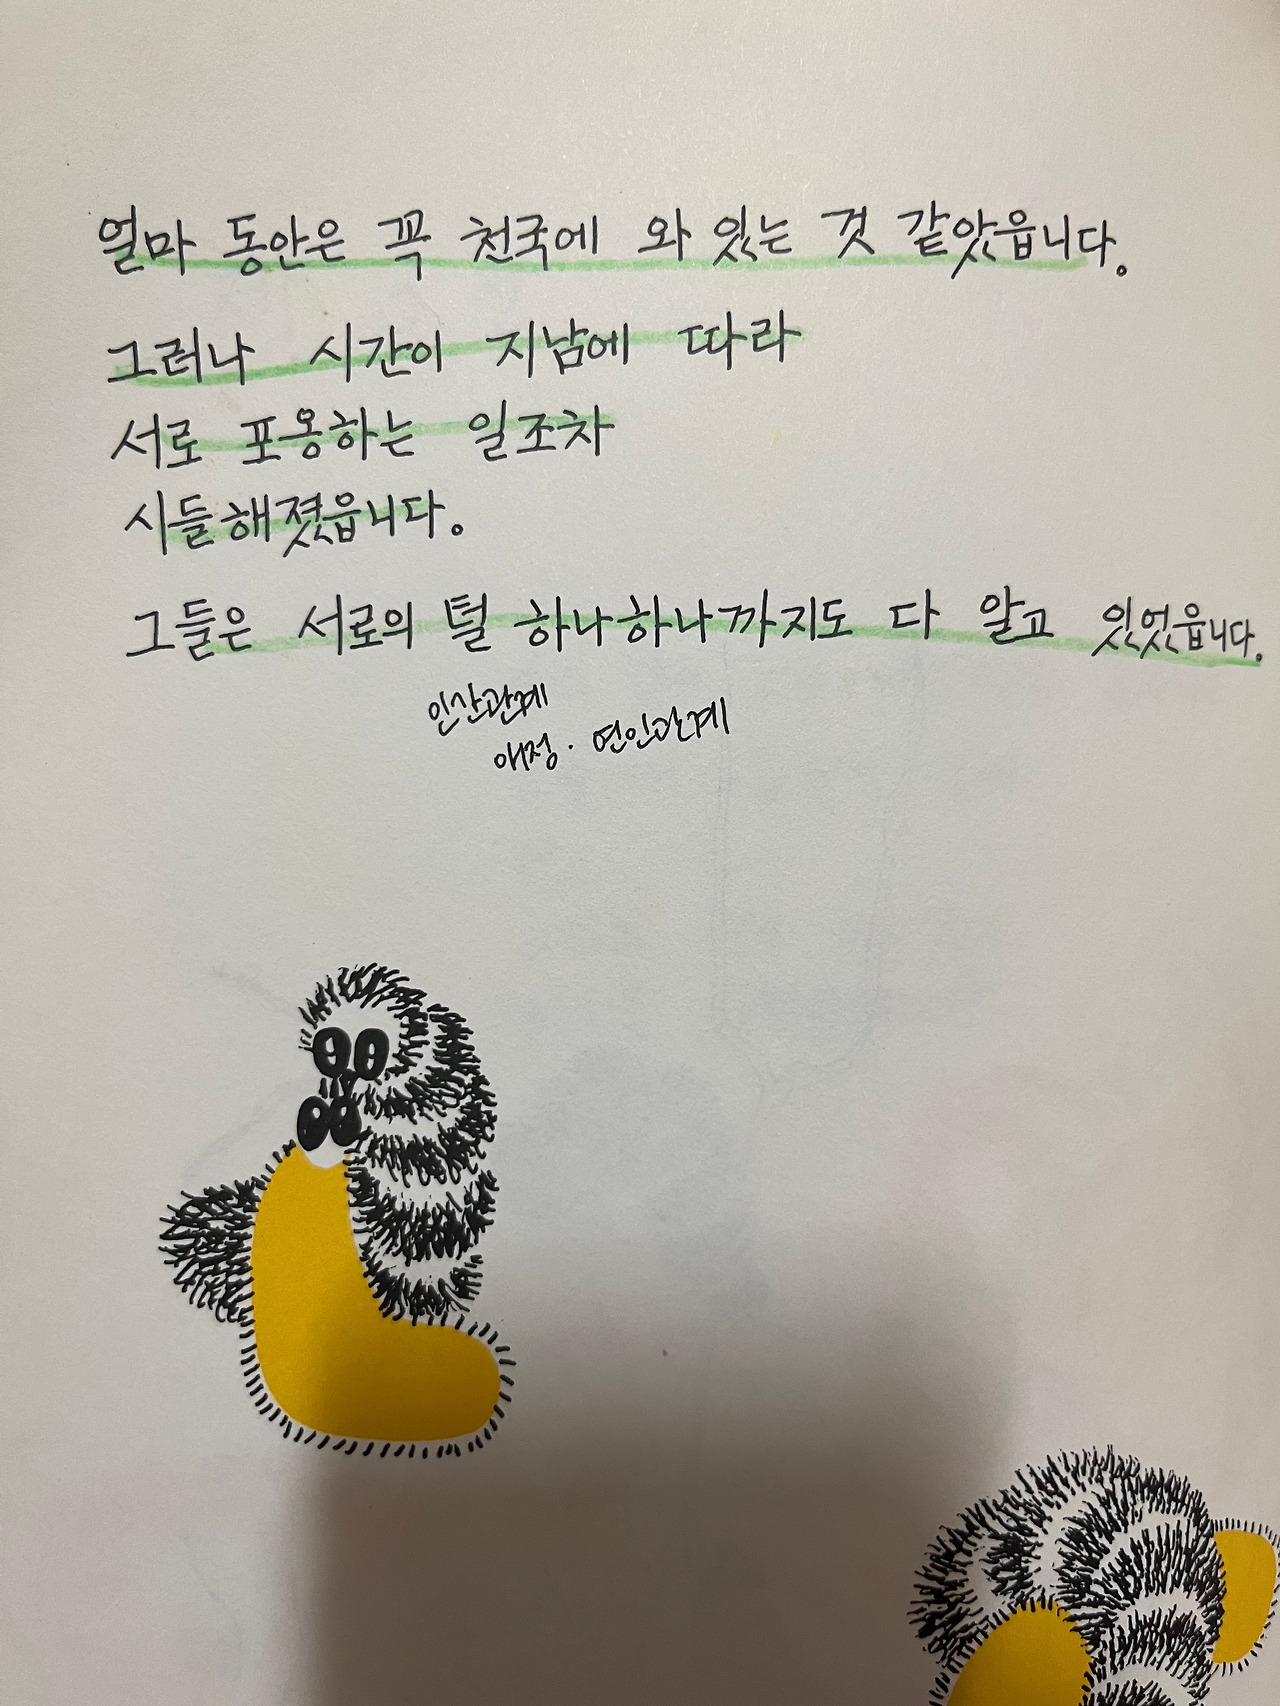 얼마 동안은 꼭 천국에 와 있는 것 같았읍니다.
그러나 시간이 지남에 따라
서로 포옹하는 일조차
시들해졌읍니다.
그들은 서로의 털 하나하나까지도 다 알고 있었읍니다.
인간관계
애정 · 연인관계